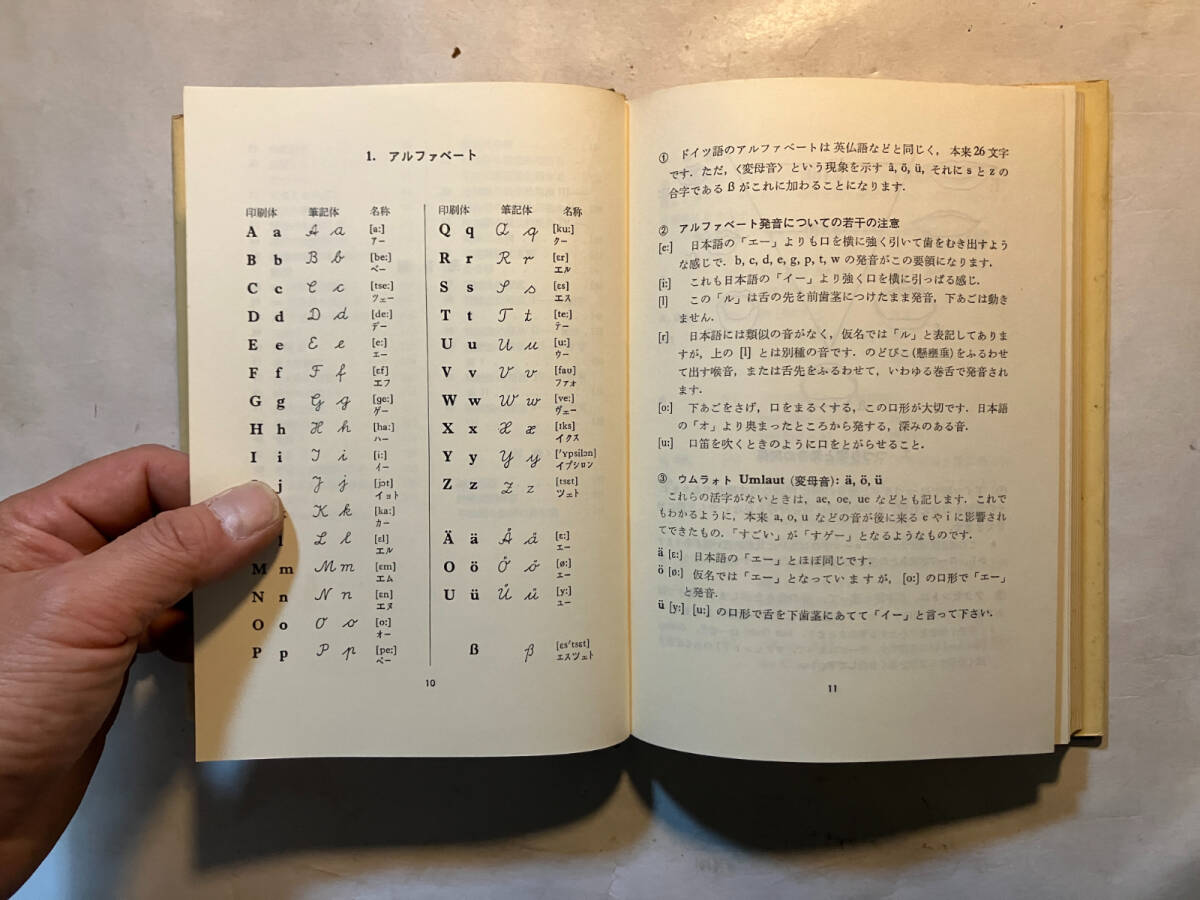 1. アルファベート
印刷体 筆記体 名称
A a A a [a:]
アー
B b B b [be:]
ベー
C c C c [tse:]
ツェー
D d D d [de:]
デー
E e E e [e:]
エー
F f F f [ɛf]
エフ
G g G g [ge:]
ゲー
H h H h [ha:]
ハー
I i I i [i:]
イー
j J j [jɔt]
イョト
K k [ka:]
カー
l L l [ɛl]
エル
M m M m [ɛm]
エム
N n N n [ɛn]
エヌ
O o O o [o:]
オー
P p P p [pe:]
ペー
印刷体 筆記体 名称
Q q Q q [ku:]
クー
R r R r [ɛr]
エル
S s S s [ɛs]
エス
T t T t [te:]
テー
U u U u [u:]
ウー
V v V v [faʊ]
ファオ
W w W w [ve:]
ヴェー
X x X x [ɪks]
イクス
Y y Y y ['ʏpsilɔn]
イプシロン
Z z Z z [tsɛt]
ツェト
Ä ä Ä ä [ɛ:]
エー
O ö Ö ö [ø:]
エー
U ü Ü ü [y:]
ユー
ß ß [ɛs'tsɛt]
エスツェト
10
① ドイツ語のアルファベートは英仏語などと同じく，本来26文字
です．ただ，〈変母音〉という現象を示す ä, ö, ü, それに s と z の
合字である ß がこれに加わることになります．
② アルファベート発音についての若干の注意
[e:] 日本語の「エー」よりも口を横に強く引いて歯をむき出すよう
な感じで．b, c, d, e, g, p, t, w の発音がこの要領になります．
[i:] これも日本語の「イー」より強く口を横に引っぱる感じ．
[l] この「ル」は舌の先を前歯茎につけたまま発音，下あごは動き
ません．
[r] 日本語には類似の音がなく，仮名では「ル」と表記してありま
すが，上の [l] とは別種の音です．のどびこ(懸壅垂)をふるわせ
て出す喉音，または舌先をふるわせて，いわゆる巻舌で発音され
ます．
[o:] 下あごをさげ，口をまるくする，この口形が大切です．日本語
の「オ」より奥まったところから発する，深みのある音．
[u:] 口笛を吹くときのように口をとがらせること．
③ ウムラォト Umlaut (変母音): ä, ö, ü
これらの活字がないときは，ae, oe, ue などとも記します．これで
もわかるように，本来 a, o, u などの音が後に来る e や i に影響され
てできたもの．「すごい」が「すゲー」となるようなものです．
ä [ɛ:] 日本語の「エー」とほぼ同じです．
ö [ø:] 仮名では「エー」となっていますが，[o:] の口形で「エー」
と発音．
ü [y:] [u:] の口形で舌を下歯茎にあてて「イー」と言って下さい．
11